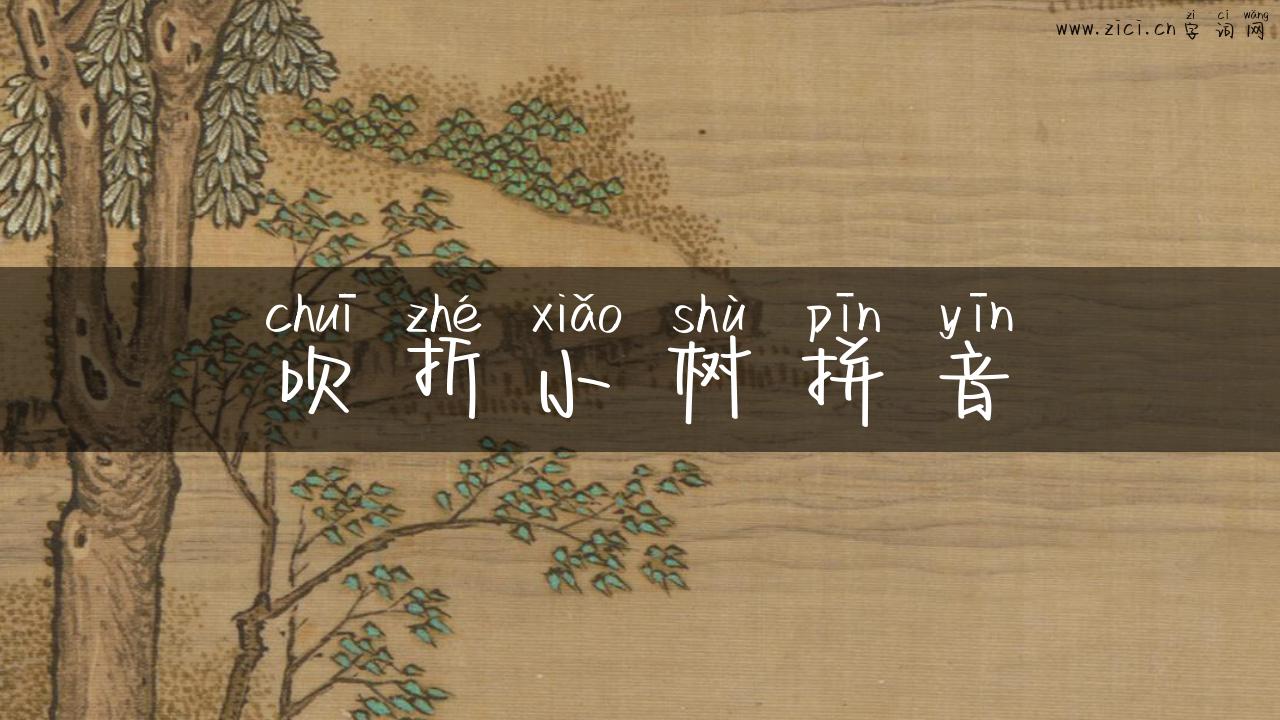 zì cí wǎng
www.zici.cn 字词网
chuī zhé xiǎo shù pīn yīn
吹折小树拼音